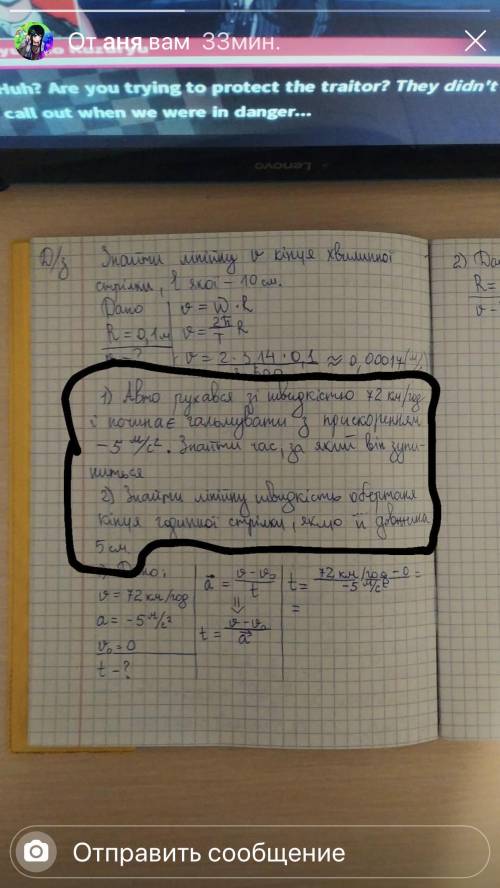 От аня вам 33мин.
Huh? Are you trying to protect the traitor? They didn't
call out when we were in danger...
Lenovo
Д/з Знайти лінійну v кінця хвилинної
стрілки, l якої - 10 см.
Дано v = W · R
R = 0,1м v = 2π/T R
v = 2 · 3,14 · 0,1 ≈ 0,00017 (м/
1) Авто рухався зі швидкістю 72 км/год
і починає гальмувати з прискоренням
-5 м/с². Знайти час, за який він зупи-
ниться
2) Знайти лінійну швидкість обертаня
кінця годинної стрілки, якщо її довжина
5 см.
Дано:
v = 72 км/год
a = -5 м/с²
v₀ = 0
t - ?
a⃗ = v - v₀ / t
⇓
t = v - v₀ / a⃗
t = 72 км/год - 0 / -5 м/с² =
=
2) Да
R =
v -
Отправить сообщение